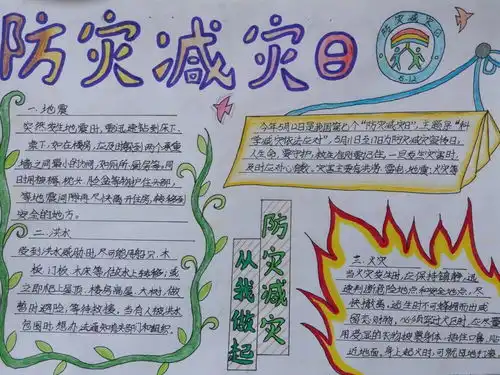 防灾减灾日
防灾减灾日
5.12
一.地震
突然发生地震时,要迅速钻到床下、
桌下,如在楼房,应及时躲到两个承重
墙之间最小的房间,如厕所、厨房等,同
时用棉棉、枕头、脸盆等物护住头部,
等地震间隙再尽快离开住房,转移到
安全的地方。
二.洪水
受到洪水威胁时,尽可能用船只、木
板、门板、木床等,做水上转移;或
立即爬上屋顶、楼房高层、大树,做
暂时避险,等待救援,当有人被洪水
包围时,想办法通知有关部门和组织。
今年5月12日是我国第六个“防灾减灾日”,主题是“科
学减灾依法应对”,5月11日至17日为防灾减灾宣传日,
人生命,要守护,救生原则要记住,一旦发生灾害时,
及时应对心自救,灾害主要有洪涝、雪白、地震、火灾等
防灾减灾
从我做起
三.火灾
当火灾发生时,应保持镇静,迅
速判断危险地点和安全地点,尽
快撤离,逃生时不可蜂拥而出或
留恋财物,必须穿过火区时,应尽量
用浸湿的衣物披裹身体,捂住口鼻,贴
近地面,身上起火时,可就地打滚